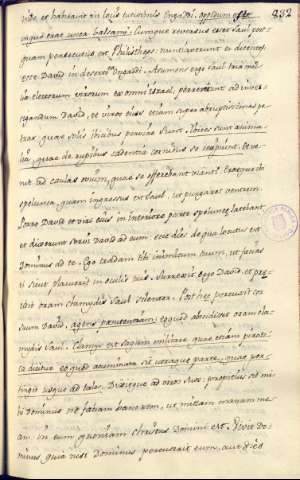 inde, et habitavit in locis tutissimis Engadi. oppidum est in
quo erat vinea balsami. Cumque reversus esset Saul post
quam persecutus est Philisthæos, nuntiaverunt ei dicentes,
ecce David in deserto Engaddi. Assumens ergo Saul tria mil
lia electorum virorum ex omni Israel, perrexit ad inves
tigandum David, et viros eius, etiam super abruptissimas pe
tras, quae solis ibicibus perviae sunt. ibices sunt anima
lia, quae de rupibus cadentia cornibus se recipiunt. Et ve
nit ad caulas ovium, quae se offerebant vianti. Eratque ibi
spelunca, quam ingressus est Saul, ut purgaret ventrem.
Porro David et viri eius in interiore parte speluncae latebant,
et dixerunt servi David ad eum: ecce dies de qua locutus est
Dominus ad te. Ego tradam tibi inimicum tuum, ut facias
ei sicut placuerit in oculis tuis. Surrexit ergo David, et prae
cidit oram chlamydis Saul silenter. Post haec percussit cor
suum David, agens paenitentiam eo quod abscidisset oram chla
mydis Saul. Clamys est sagum militare quae etiam
dicitur eo quod acuminata sit utraque parte, quae per
tingit usque ad talos. Dixitque ad viros suos: propitius sit mi
hi Dominus ne faciam hanc rem, ut mittam manum me
am in eum quoniam christus Domini est. Vivit Do
minus quia nisi Dominus percusserit eum, aut dies
232